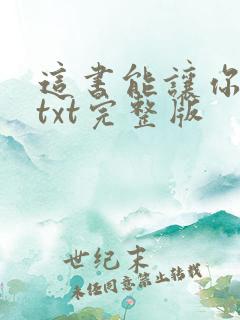 這書能讓你
txt完整版
世纪末
未经同意禁止转载